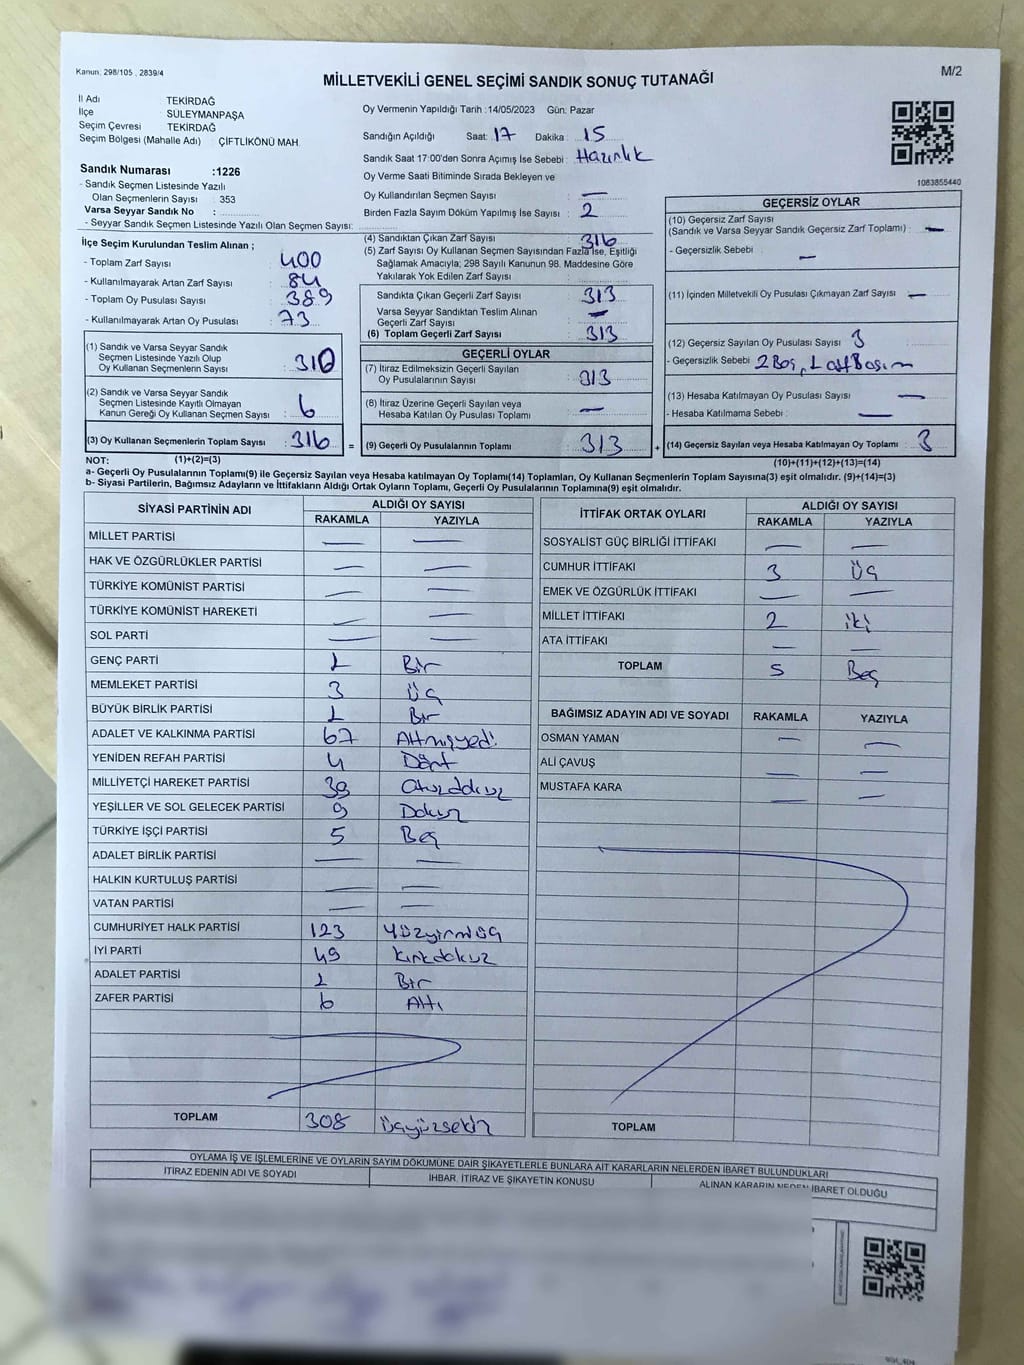 Kanun; 298/105 , 2839/4
M/2
MİLLETVEKİLİ GENEL SEÇİMİ SANDIK SONUÇ TUTANAĞI
İl Adı : TEKİRDAĞ
İlçe : SÜLEYMANPAŞA
Seçim Çevresi : TEKİRDAĞ
Seçim Bölgesi (Mahalle Adı) : ÇİFTLİKÖNÜ MAH.
Sandık Numarası :1226
- Sandık Seçmen Listesinde Yazılı
Olan Seçmenlerin Sayısı : 353
Varsa Seyyar Sandık No :
- Seyyar Sandık Seçmen Listesinde Yazılı Olan Seçmen Sayısı:
Oy Vermenin Yapıldığı Tarih :14/05/2023 Gün: Pazar
Sandığın Açıldığı Saat: 17 Dakika : 15
Sandık Saat 17:00'den Sonra Açımış İse Sebebi : Hazırlık
Oy Verme Saati Bitiminde Sırada Bekleyen ve
Oy Kullandırılan Seçmen Sayısı : —
Birden Fazla Sayım Döküm Yapılmış İse Sayısı : 2
1083855440
İlçe Seçim Kurulundan Teslim Alınan ;
- Toplam Zarf Sayısı : 400
- Kullanılmayarak Artan Zarf Sayısı : 84
- Toplam Oy Pusulası Sayısı : 389
- Kullanılmayarak Artan Oy Pusulası : 73
(1) Sandık ve Varsa Seyyar Sandık
Seçmen Listesinde Yazılı Olup
Oy Kullanan Seçmenlerin Sayısı : 310
(2) Sandık ve Varsa Seyyar Sandık
Seçmen Listesinde Kayıtlı Olmayan
Kanun Gereği Oy Kullanan Seçmen Sayısı : 6
(3) Oy Kullanan Seçmenlerin Toplam Sayısı : 316 =
(4) Sandıktan Çıkan Zarf Sayısı : 316
(5) Zarf Sayısı Oy Kullanan Seçmen Sayısından Fazla İse, Eşitliği
Sağlamak Amacıyla; 298 Sayılı Kanunun 98. Maddesine Göre
Yakılarak Yok Edilen Zarf Sayısı :
Sandıkta Çıkan Geçerli Zarf Sayısı : 313
Varsa Seyyar Sandıktan Teslim Alınan
Geçerli Zarf Sayısı : —
(6) Toplam Geçerli Zarf Sayısı : 313
GEÇERLİ OYLAR
(7) İtiraz Edilmeksizin Geçerli Sayılan
Oy Pusulalarının Sayısı : 313
(8) İtiraz Üzerine Geçerli Sayılan veya
Hesaba Katılan Oy Pusulası Toplamı : —
(9) Geçerli Oy Pusulalarının Toplamı : 313 +
GEÇERSİZ OYLAR
(10) Geçersiz Zarf Sayısı
(Sandık ve Varsa Seyyar Sandık Geçersiz Zarf Toplamı) : —
- Geçersizlik Sebebi : —
(11) İçinden Milletvekili Oy Pusulası Çıkmayan Zarf Sayısı : —
(12) Geçersiz Sayılan Oy Pusulası Sayısı : 3
- Geçersizlik Sebebi : 2 Boş, 1
(13) Hesaba Katılmayan Oy Pusulası Sayısı : —
- Hesaba Katılmama Sebebi : —
(14) Geçersiz Sayılan veya Hesaba Katılmayan Oy Toplamı : 3
NOT: (1)+(2)=(3)
(10)+(11)+(12)+(13)=(14)
a- Geçerli Oy Pusulalarının Toplamı(9) ile Geçersiz Sayılan veya Hesaba katılmayan Oy Toplamı(14) Toplamları, Oy Kullanan Seçmenlerin Toplam Sayısına(3) eşit olmalıdır. (9)+(14)=(3)
b- Siyasi Partilerin, Bağımsız Adayların ve İttifakların Aldığı Ortak Oyların Toplamı, Geçerli Oy Pusulalarının Toplamına(9) eşit olmalıdır.
SİYASİ PARTİNİN ADI ALDIĞI OY SAYISI
RAKAMLA YAZIYLA
MİLLET PARTİSİ — —
HAK VE ÖZGÜRLÜKLER PARTİSİ — —
TÜRKİYE KOMÜNİST PARTİSİ — —
TÜRKİYE KOMÜNİST HAREKETİ — —
SOL PARTİ — —
GENÇ PARTİ 1 Bir
MEMLEKET PARTİSİ 3 Üç
BÜYÜK BİRLİK PARTİSİ 1 Bir
ADALET VE KALKINMA PARTİSİ 67 Altmışyedi
YENİDEN REFAH PARTİSİ 4 Dört
MİLLİYETÇİ HAREKET PARTİSİ 39 Otuzdokuz
YEŞİLLER VE SOL GELECEK PARTİSİ 9 Dokuz
TÜRKİYE İŞÇİ PARTİSİ 5 Beş
ADALET BİRLİK PARTİSİ — —
HALKIN KURTULUŞ PARTİSİ — —
VATAN PARTİSİ — —
CUMHURİYET HALK PARTİSİ 123 Yüzyirmiüç
İYİ PARTİ 49 Kırkdokuz
ADALET PARTİSİ 1 Bir
ZAFER PARTİSİ 6 Altı
TOPLAM 308 Üçyüzsekiz
İTTİFAK ORTAK OYLARI ALDIĞI OY SAYISI
RAKAMLA YAZIYLA
SOSYALİST GÜÇ BİRLİĞİ İTTİFAKI — —
CUMHUR İTTİFAKI 3 Üç
EMEK VE ÖZGÜRLÜK İTTİFAKI — —
MİLLET İTTİFAKI 2 iki
ATA İTTİFAKI — —
TOPLAM 5 Beş
BAĞIMSIZ ADAYIN ADI VE SOYADI RAKAMLA YAZIYLA
OSMAN YAMAN — —
ALİ ÇAVUŞ — —
MUSTAFA KARA — —
TOPLAM
OYLAMA İŞ VE İŞLEMLERİNE VE OYLARIN SAYIM DÖKÜMÜNE DAİR ŞİKAYETLERLE BUNLARA AİT KARARLARIN NELERDEN İBARET BULUNDUKLARI
İTİRAZ EDENİN ADI VE SOYADI İHBAR, İTİRAZ VE ŞİKAYETİN KONUSU ALINAN KARARIN NEDEN İBARET OLDUĞU